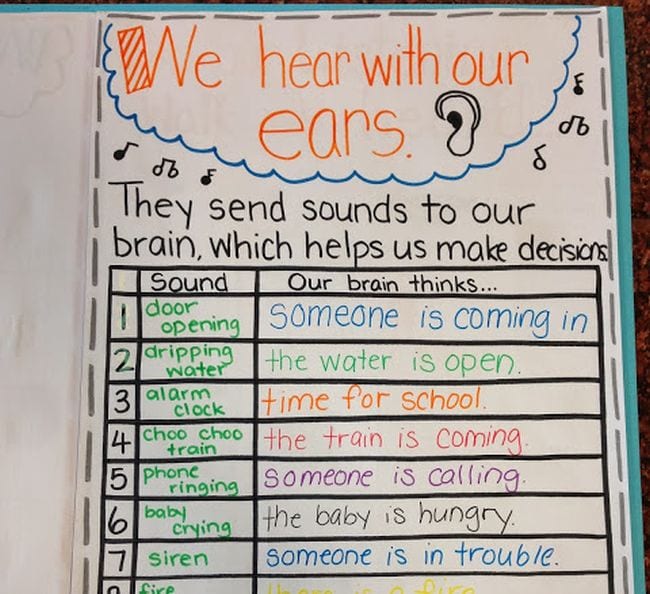 We hear with our
ears.
They send sounds to our
brain, which helps us make decisions
Sound Our brain thinks...
1 door opening someone is coming in
2 dripping water the water is open.
3 alarm clock time for school.
4 choo choo train the train is coming.
5 phone ringing someone is calling.
6 baby crying the baby is hungry.
7 siren someone is in trouble.
fire there is a fire